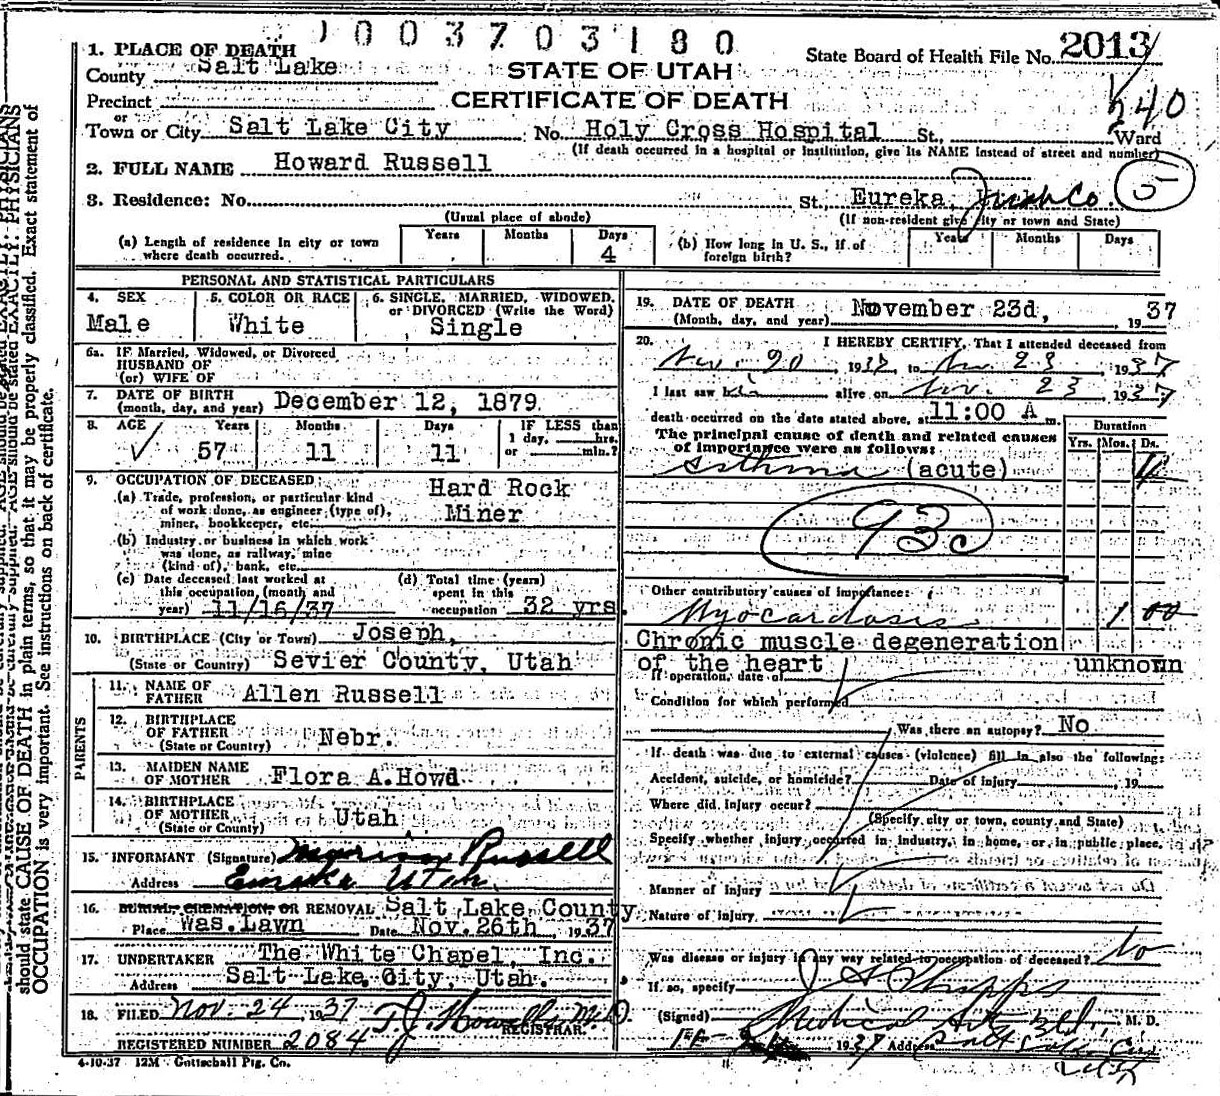 1003703180
State Board of Health File No. 2013
1. PLACE OF DEATH
County Salt Lake
STATE OF UTAH
CERTIFICATE OF DEATH
240
Precinct
or
Town or City Salt Lake City No. Holy Cross Hospital St., Ward
(If death occurred in a hospital or institution, give its NAME instead of street and number)
2. FULL NAME Howard Russell
5
3. Residence: No. St. Eureka, Juab Co.
(Usual place of abode) (If non-resident give city or town and State)
(a) Length of residence in city or town where death occurred. Years Months Days 4
(b) How long in U. S., if of foreign birth? Years Months Days
PERSONAL AND STATISTICAL PARTICULARS
4. SEX Male
5. COLOR OR RACE White
6. SINGLE, MARRIED, WIDOWED, or DIVORCED (Write the Word) Single
6a. IF Married, Widowed, or Divorced
HUSBAND OF
(or) WIFE OF
7. DATE OF BIRTH (month, day, and year) December 12, 1879
8. AGE Years 57 Months 11 Days 11 IF LESS than 1 day, hrs. or min.?
9. OCCUPATION OF DECEASED Hard Rock
(a) Trade, profession, or particular kind of work done, as engineer (type of), miner, bookkeeper, etc. Miner
(b) Industry or business in which work was done, as railway, mine (kind of), bank, etc.
(c) Date deceased last worked at this occupation (month and year) 11/16/37
(d) Total time (years) spent in this occupation 32 yrs.
10. BIRTHPLACE (City or Town) Joseph,
(State or Country) Sevier County, Utah
PARENTS
11. NAME OF FATHER Allen Russell
12. BIRTHPLACE OF FATHER (State or Country) Nebr.
13. MAIDEN NAME OF MOTHER Flora A. Howd
14. BIRTHPLACE OF MOTHER (State or Country) Utah
15. INFORMANT (Signature) Russell
Address Eureka Utah.
16. BURIAL, CREMATION, OR REMOVAL Salt Lake County
Place Was. Lawn Date Nov. 26th, 1937
17. UNDERTAKER The White Chapel, Inc.
Address Salt Lake City, Utah.
18. FILED Nov. 24, 1937 T. J. Howells M.D. REGISTRAR.
REGISTERED NUMBER 2084
4-10-37 12M Gottschall Ptg. Co.
19. DATE OF DEATH (Month, day, and year) November 23d, 1937
20. I HEREBY CERTIFY, That I attended deceased from
Nov. 20, 1937, to Nov. 23, 1937
I last saw him alive on Nov. 23, 1937
death occurred on the date stated above, at 11:00 A m.
The principal cause of death and related causes of importance were as follows:
Duration
Yrs. Mos. Ds.
Asthma (acute)
93c
Other contributory causes of importance:
Myocardosis
Chronic muscle degeneration
of the heart unknown
If operation, date of
Condition for which performed
Was there an autopsy? No
If death was due to external causes (violence) fill in also the following:
Accident, suicide, or homicide? Date of injury , 19
Where did injury occur?
(Specify city or town, county and State)
Specify whether injury occurred in industry, in home, or in public place.
Manner of injury
Nature of injury
Was disease or injury in any way related to occupation of deceased? No
If so, specify
(Signed) J A Phipps M. D.
Medical Art Bld.,
1937 Address Salt Lake City
Utah
should state CAUSE OF DEATH in plain terms, so that it may be properly classified. Exact statement of
OCCUPATION is very important. See instructions on back of certificate.